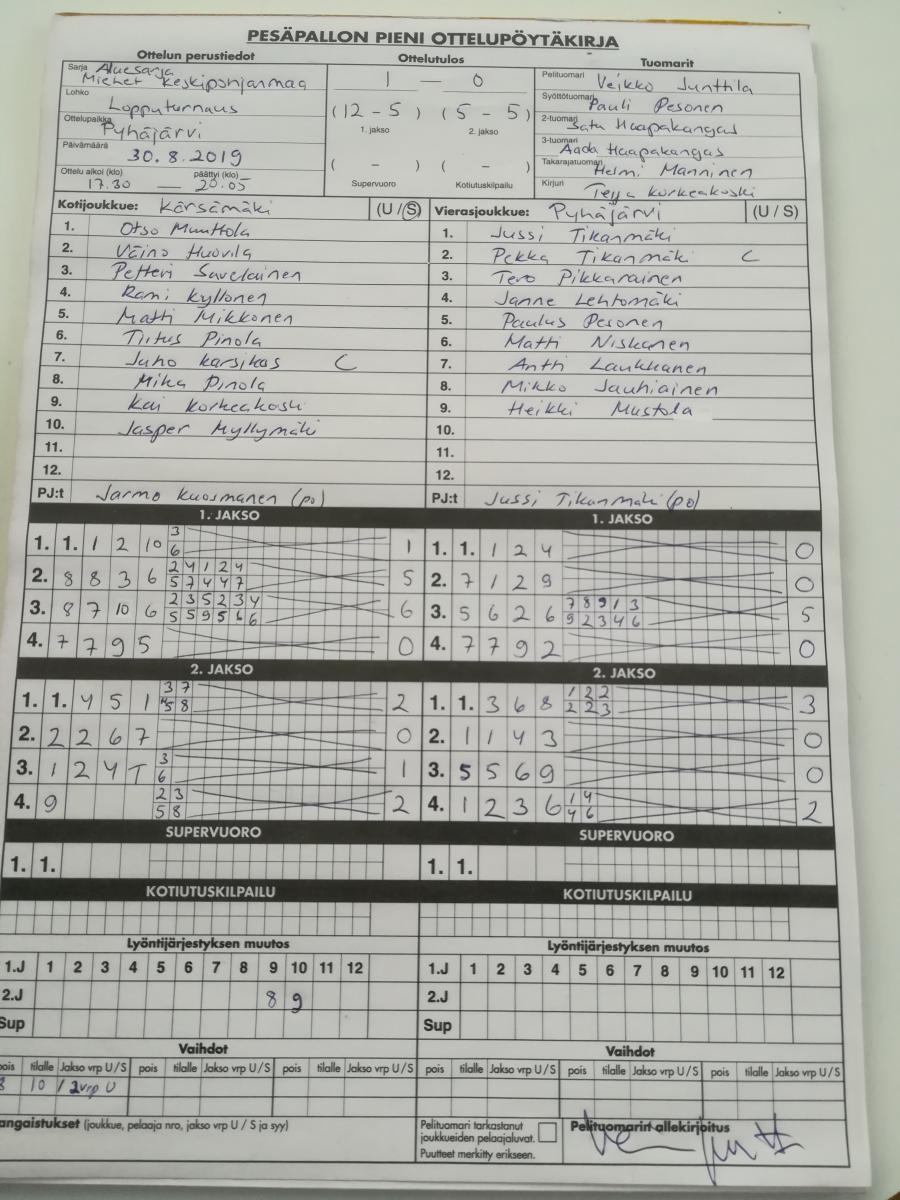 PESÄPALLON PIENI OTTELUPÖYTÄKIRJA
Ottelun perustiedot
Sarja Aluesarja
Miehet Keskipohjanmaa
Lohko Lopputurnaus
Ottelupaikka Pyhäjärvi
Päivämäärä 30.8.2019
Ottelu alkoi (klo) päättyi (klo)
17.30 — 20.05
Ottelutulos
1 — 0
(12 - 5) (5 - 5)
1. jakso 2. jakso
( - ) ( - )
Supervuoro Kotiutuskilpailu
Tuomarit
Pelituomari Veikko Junttila
Syöttötuomari Pauli Pesonen
2-tuomari Satu Haapakangas
3-tuomari Aada Haapakangas
Takarajatuomari Helmi Manninen
Kirjuri Teija Korkeakoski
Kotijoukkue: Kärsämäki (U / S)
1. Otso Muuttola
2. Väinö Huovila
3. Petteri Savelainen
4. Rami Kyllönen
5. Matti Mikkonen
6. Tiitus Pinola
7. Juho Karsikas C
8. Mika Pinola
9. Kai Korkeakoski
10. Jasper Myllymäki
11.
12.
PJ:t Jarmo Kuosmanen (po)
Vierasjoukkue: Pyhäjärvi (U / S)
1. Jussi Tikanmäki
2. Pekka Tikanmäki C
3. Tero Pikkarainen
4. Janne Lehtomäki
5. Paulus Pesonen
6. Matti Niskanen
7. Antti Laukkanen
8. Mikko Jauhiainen
9. Heikki Mustola
10.
11.
12.
PJ:t Jussi Tikanmäki (po)
1. JAKSO
1. 1. 1 2 10 3 1
6
2. 8 8 3 6 2 4 1 2 4 5
5 7 4 4 7
3. 8 7 10 6 2 3 5 2 3 4 6
5 5 9 5 6 6
4. 7 7 9 5 0
1. JAKSO
1. 1. 1 2 4 0
2. 7 1 2 9 0
3. 5 6 2 6 7 8 9 1 3 5
9 2 3 4 6
4. 7 7 9 2 0
2. JAKSO
1. 1. 4 5 1 3 7 2
5 8
2. 2 2 6 7 0
3. 1 2 4 T 3 1
6
4. 9 2 3 2
5 8
2. JAKSO
1. 1. 3 6 8 1 2 2 3
2 2 3
2. 1 1 4 3 0
3. 5 5 6 9 0
4. 1 2 3 6 1 4 2
4 6
SUPERVUORO
1. 1.
SUPERVUORO
1. 1.
KOTIUTUSKILPAILU
KOTIUTUSKILPAILU
Lyöntijärjestyksen muutos
1.J 1 2 3 4 5 6 7 8 9 10 11 12
2.J 8 9
Sup
Lyöntijärjestyksen muutos
1.J 1 2 3 4 5 6 7 8 9 10 11 12
2.J
Sup
Vaihdot
pois tilalle Jakso vrp U/S pois tilalle Jakso vrp U/S pois tilalle Jakso vrp U/S
8 10 1/2vrp U
Vaihdot
pois tilalle Jakso vrp U/S pois tilalle Jakso vrp U/S pois tilalle Jakso vrp U/S
angaistukset (joukkue, pelaaja nro, jakso vrp U / S ja syy)
Pelituomari tarkastanut
joukkueiden pelaajaluvat.
Puutteet merkitty erikseen.
Pelituomarin allekirjoitus